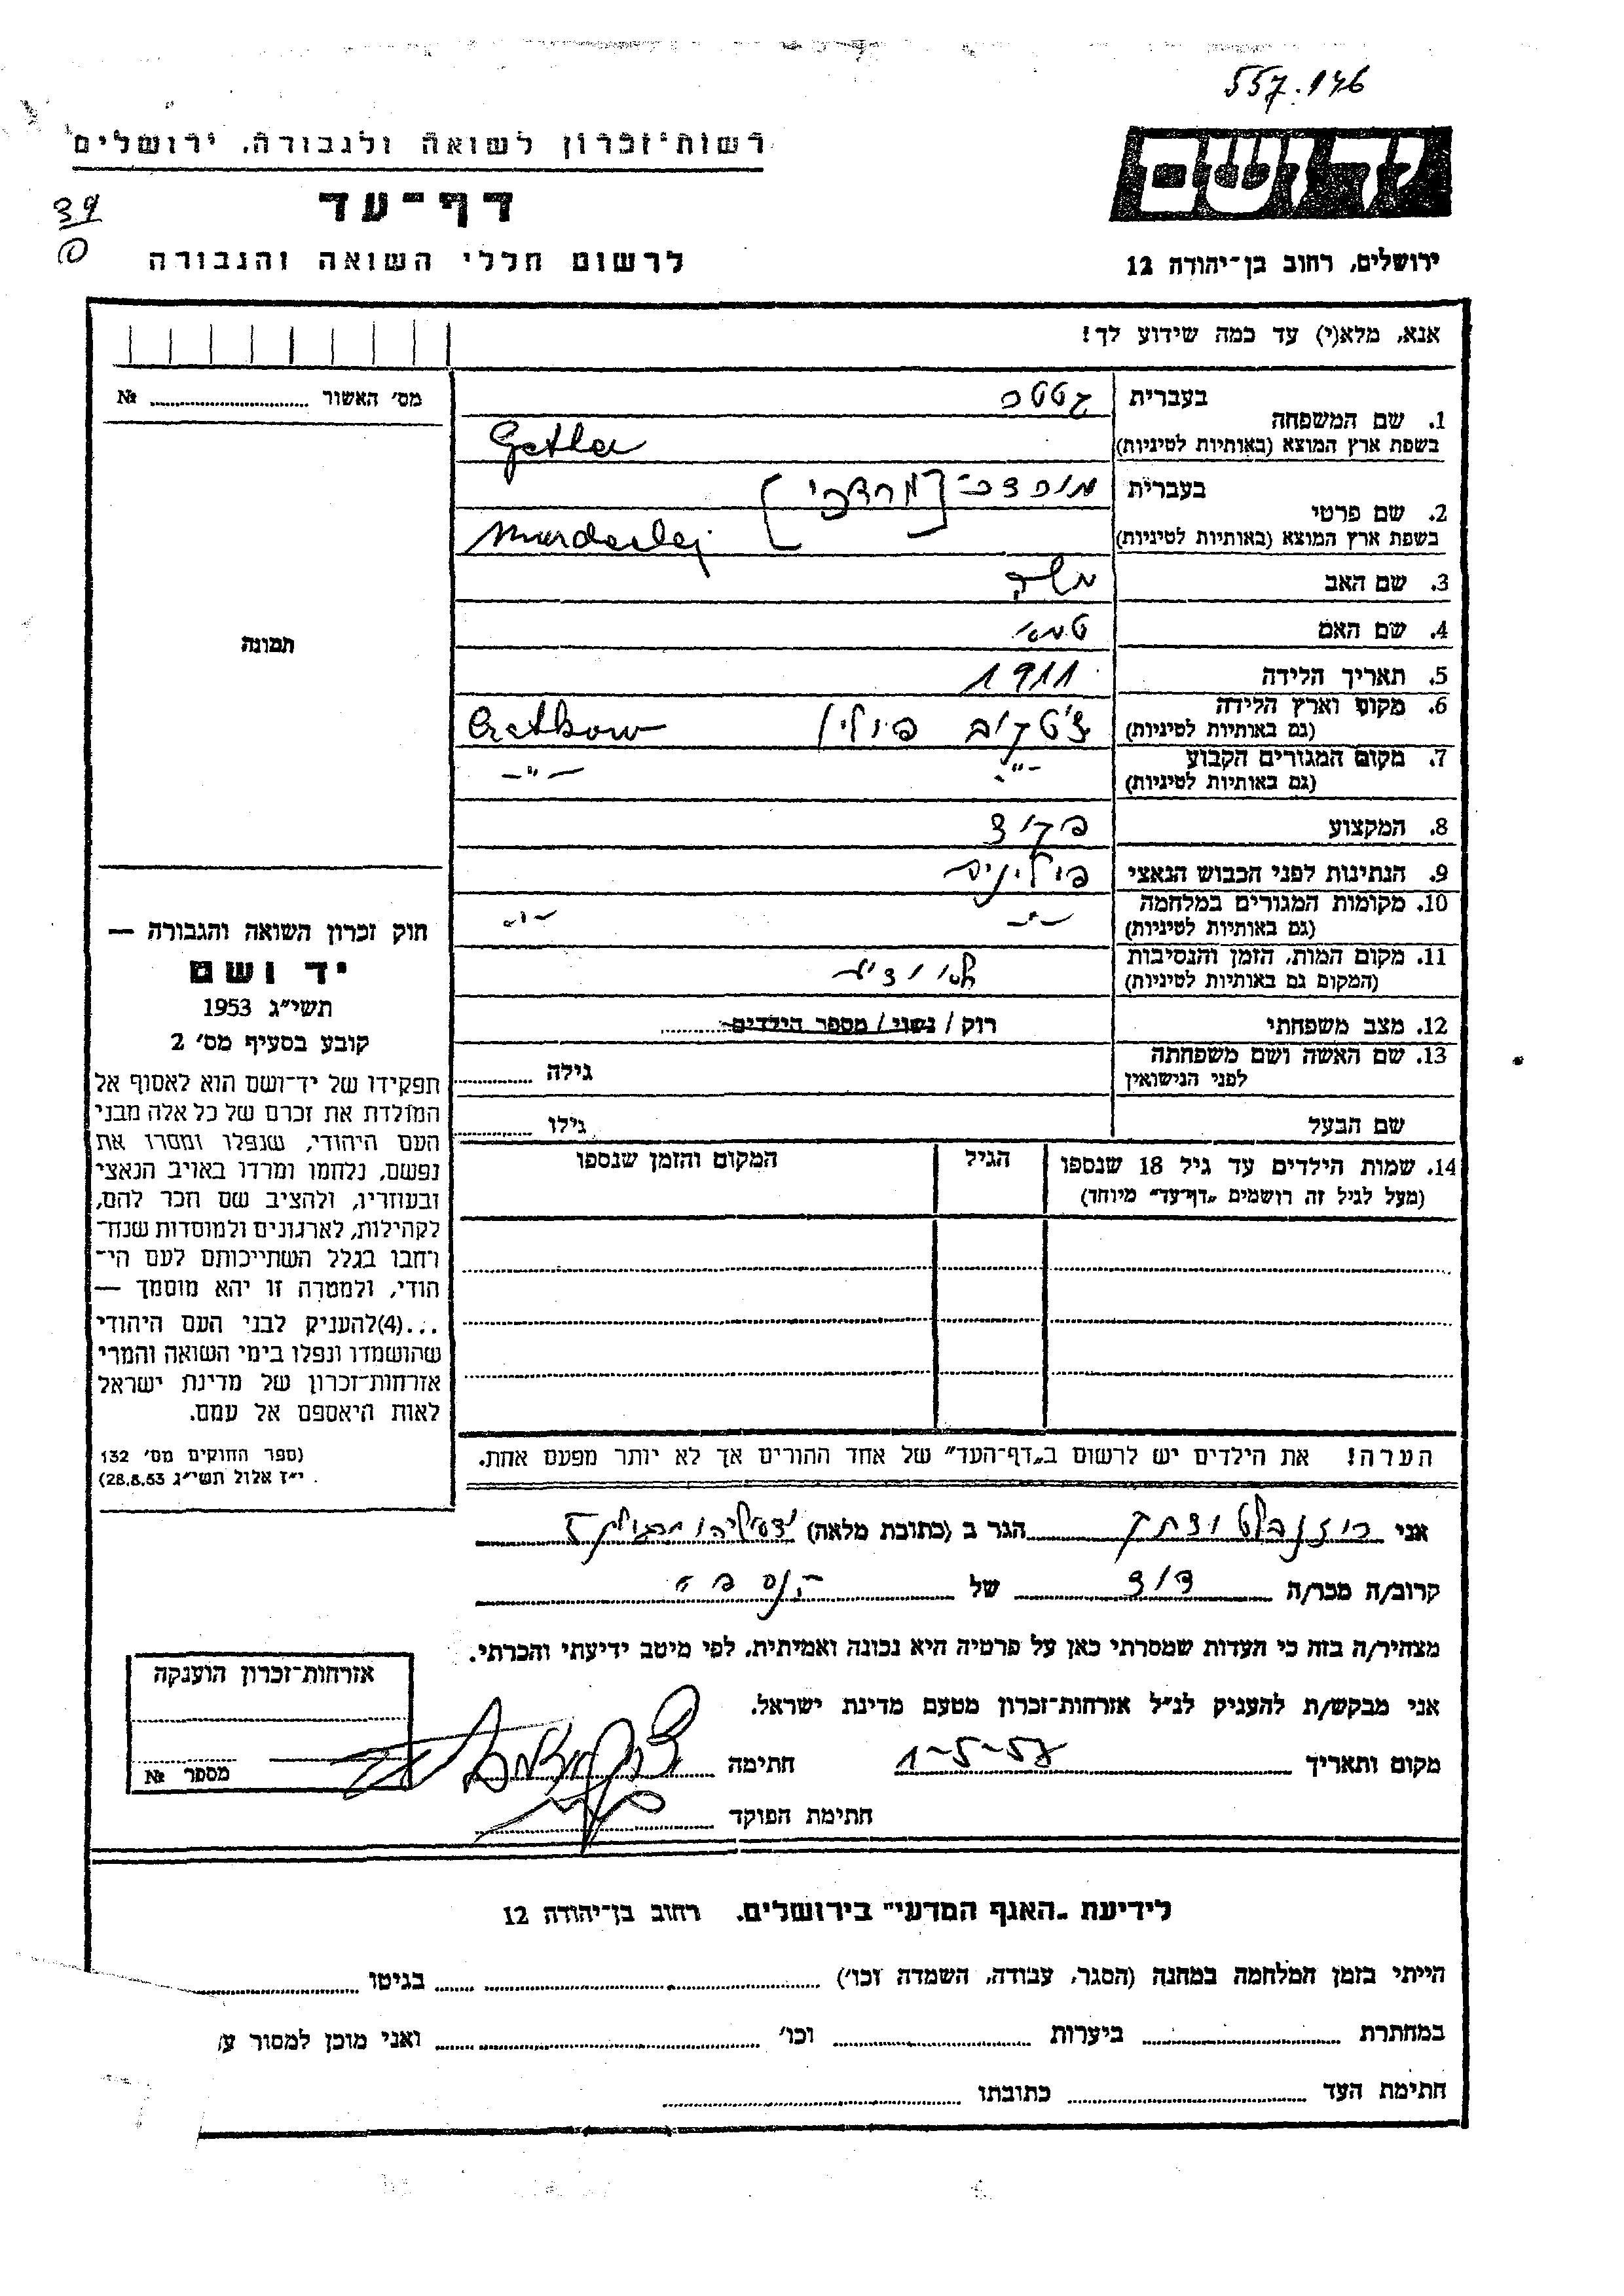 557.146
יד ושם
ירושלים, רחוב בן־יהודה 12
רשות־זכרון לשואה ולגבורה, ירושלים
דף־עד
לרשום חללי השואה והגבורה
39
אנא, מלא(י) עד כמה שידוע לך!
מס׳ האשור № 
תמונה
1. שם המשפחה
בעברית
בשפת ארץ המוצא (באותיות לטיניות)
2. שם פרטי
בעברית [מרדכי]
בשפת ארץ המוצא (באותיות לטיניות)
3. שם האב משה
4. שם האם
5. תאריך הלידה 1911
6. מקום וארץ הלידה פולין
(גם באותיות לטיניות)
7. מקום המגורים הקבוע -״- -״-
(גם באותיות לטיניות)
8. המקצוע פקיד
9. הנתינות לפני הכבוש הנאצי פולינית
10. מקומות המגורים במלחמה -״- -״-
(גם באותיות לטיניות)
11. מקום המות, הזמן והנסיבות
(המקום גם באותיות לטיניות)
12. מצב משפחתי רוק / נשוי / מספר הילדים
13. שם האשה ושם משפחתה גילה
לפני הנישואין
שם הבעל גילו
14. שמות הילדים עד גיל 18 שנספו הגיל המקום והזמן שנספו
(מעל לגיל זה רושמים „דף־עד״ מיוחד)
הערה! את הילדים יש לרשום ב„דף־העד״ של אחד ההורים אך לא יותר מפעם אחת.
חוק זכרון השואה והגבורה —
יד ושם
תשי״ג 1953
קובע בסעיף מס׳ 2
תפקידו של יד־ושם הוא לאסוף אל
המולדת את זכרם של כל אלה מבני
העם היהודי, שנפלו ומסרו את
נפשם, נלחמו ומרדו באויב הנאצי
ובעוזריו, ולהציב שם וזכר להם,
לקהילות, לארגונים ולמוסדות שנח־
רבו בגלל השתייכותם לעם הי־
הודי, ולמטרה זו יהא מוסמך —
...(4)להעניק לבני העם היהודי
שהושמדו ונפלו בימי השואה והמרי
אזרחות־זכרון של מדינת ישראל
לאות היאספם אל עמם.
(ספר החוקים מס׳ 132
י״ז אלול תשי״ג 28.8.53)
אני הגר ב (כתובת מלאה)
קרוב/ה מכר/ה דוד של הנספה
מצהיר/ה בזה כי העדות שמסרתי כאן על פרטיה היא נכונה ואמיתית, לפי מיטב ידיעתי והכרתי.
אני מבקש/ת להעניק לנ״ל אזרחות־זכרון מטעם מדינת ישראל.
מקום ותאריך 1-5-57 חתימה
חתימת הפוקד
אזרחות־זכרון הוענקה
מספר №
לידיעת „האגף המדעי״ בירושלים. רחוב בן־יהודה 12
הייתי בזמן המלחמה במחנה (הסגר, עבודה, השמדה וכו׳) בגיטו
במחתרת ביערות וכו׳ ואני מוכן למסור ע
חתימת העד כתובתו